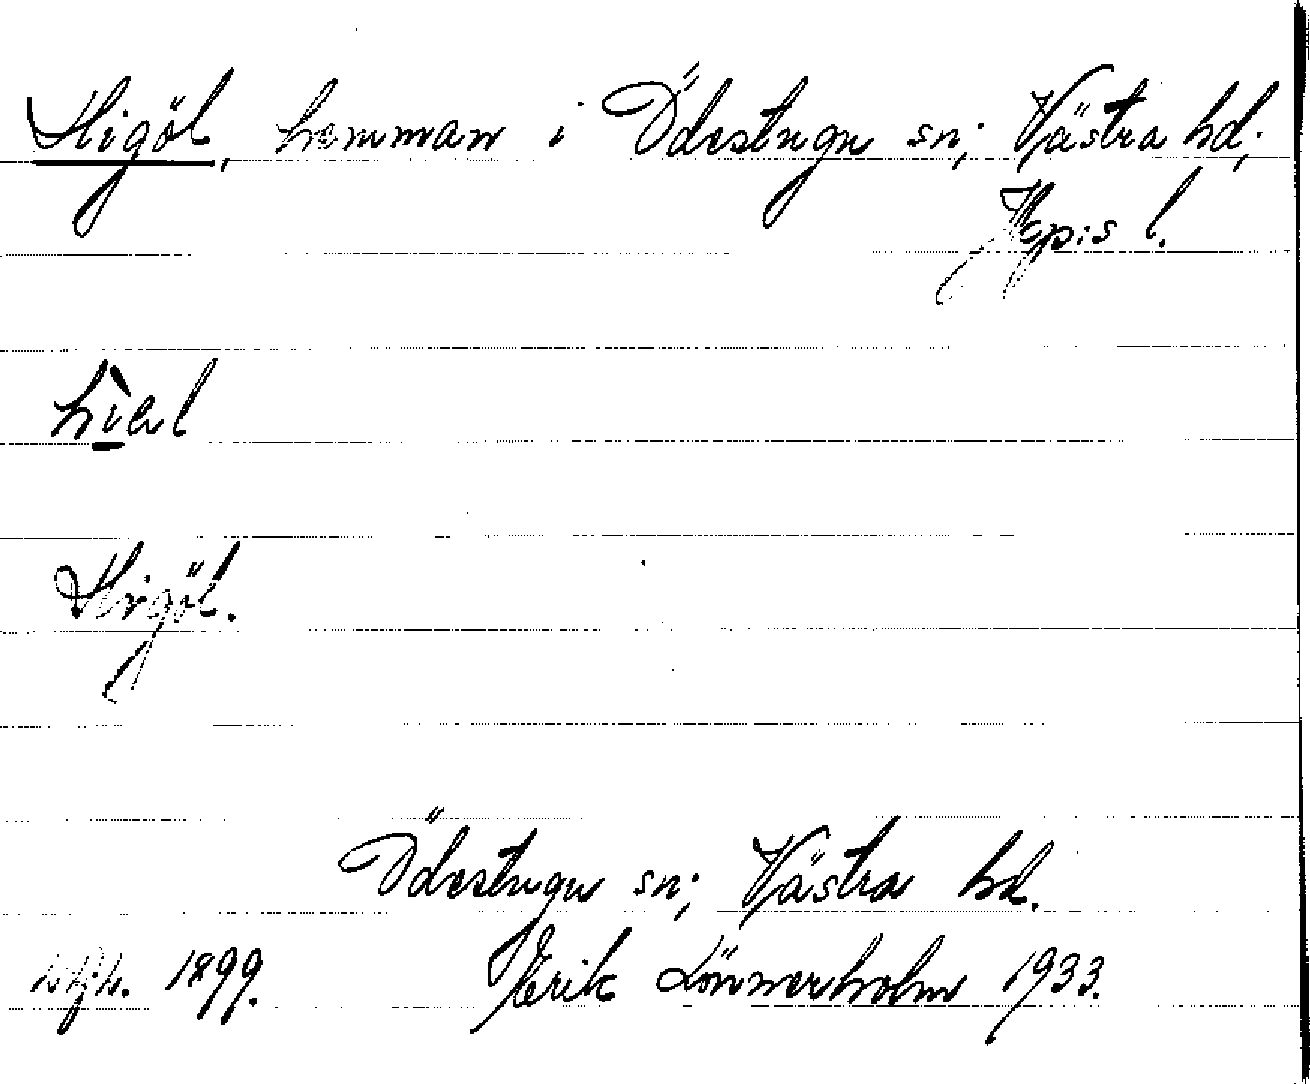 Higöl, hemman i Ödestugu sn; Västra hd;
Jkpis l.
Higöl.
Ödestugu sn; Västra hd.
1899. Erik Lönnerholm 1933.